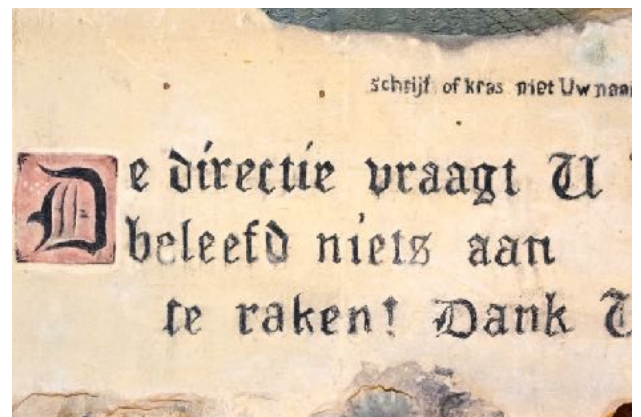 schrijf of kras niet Uw naam
De directie vraagt U
beleefd niets aan
te raken! Dank U